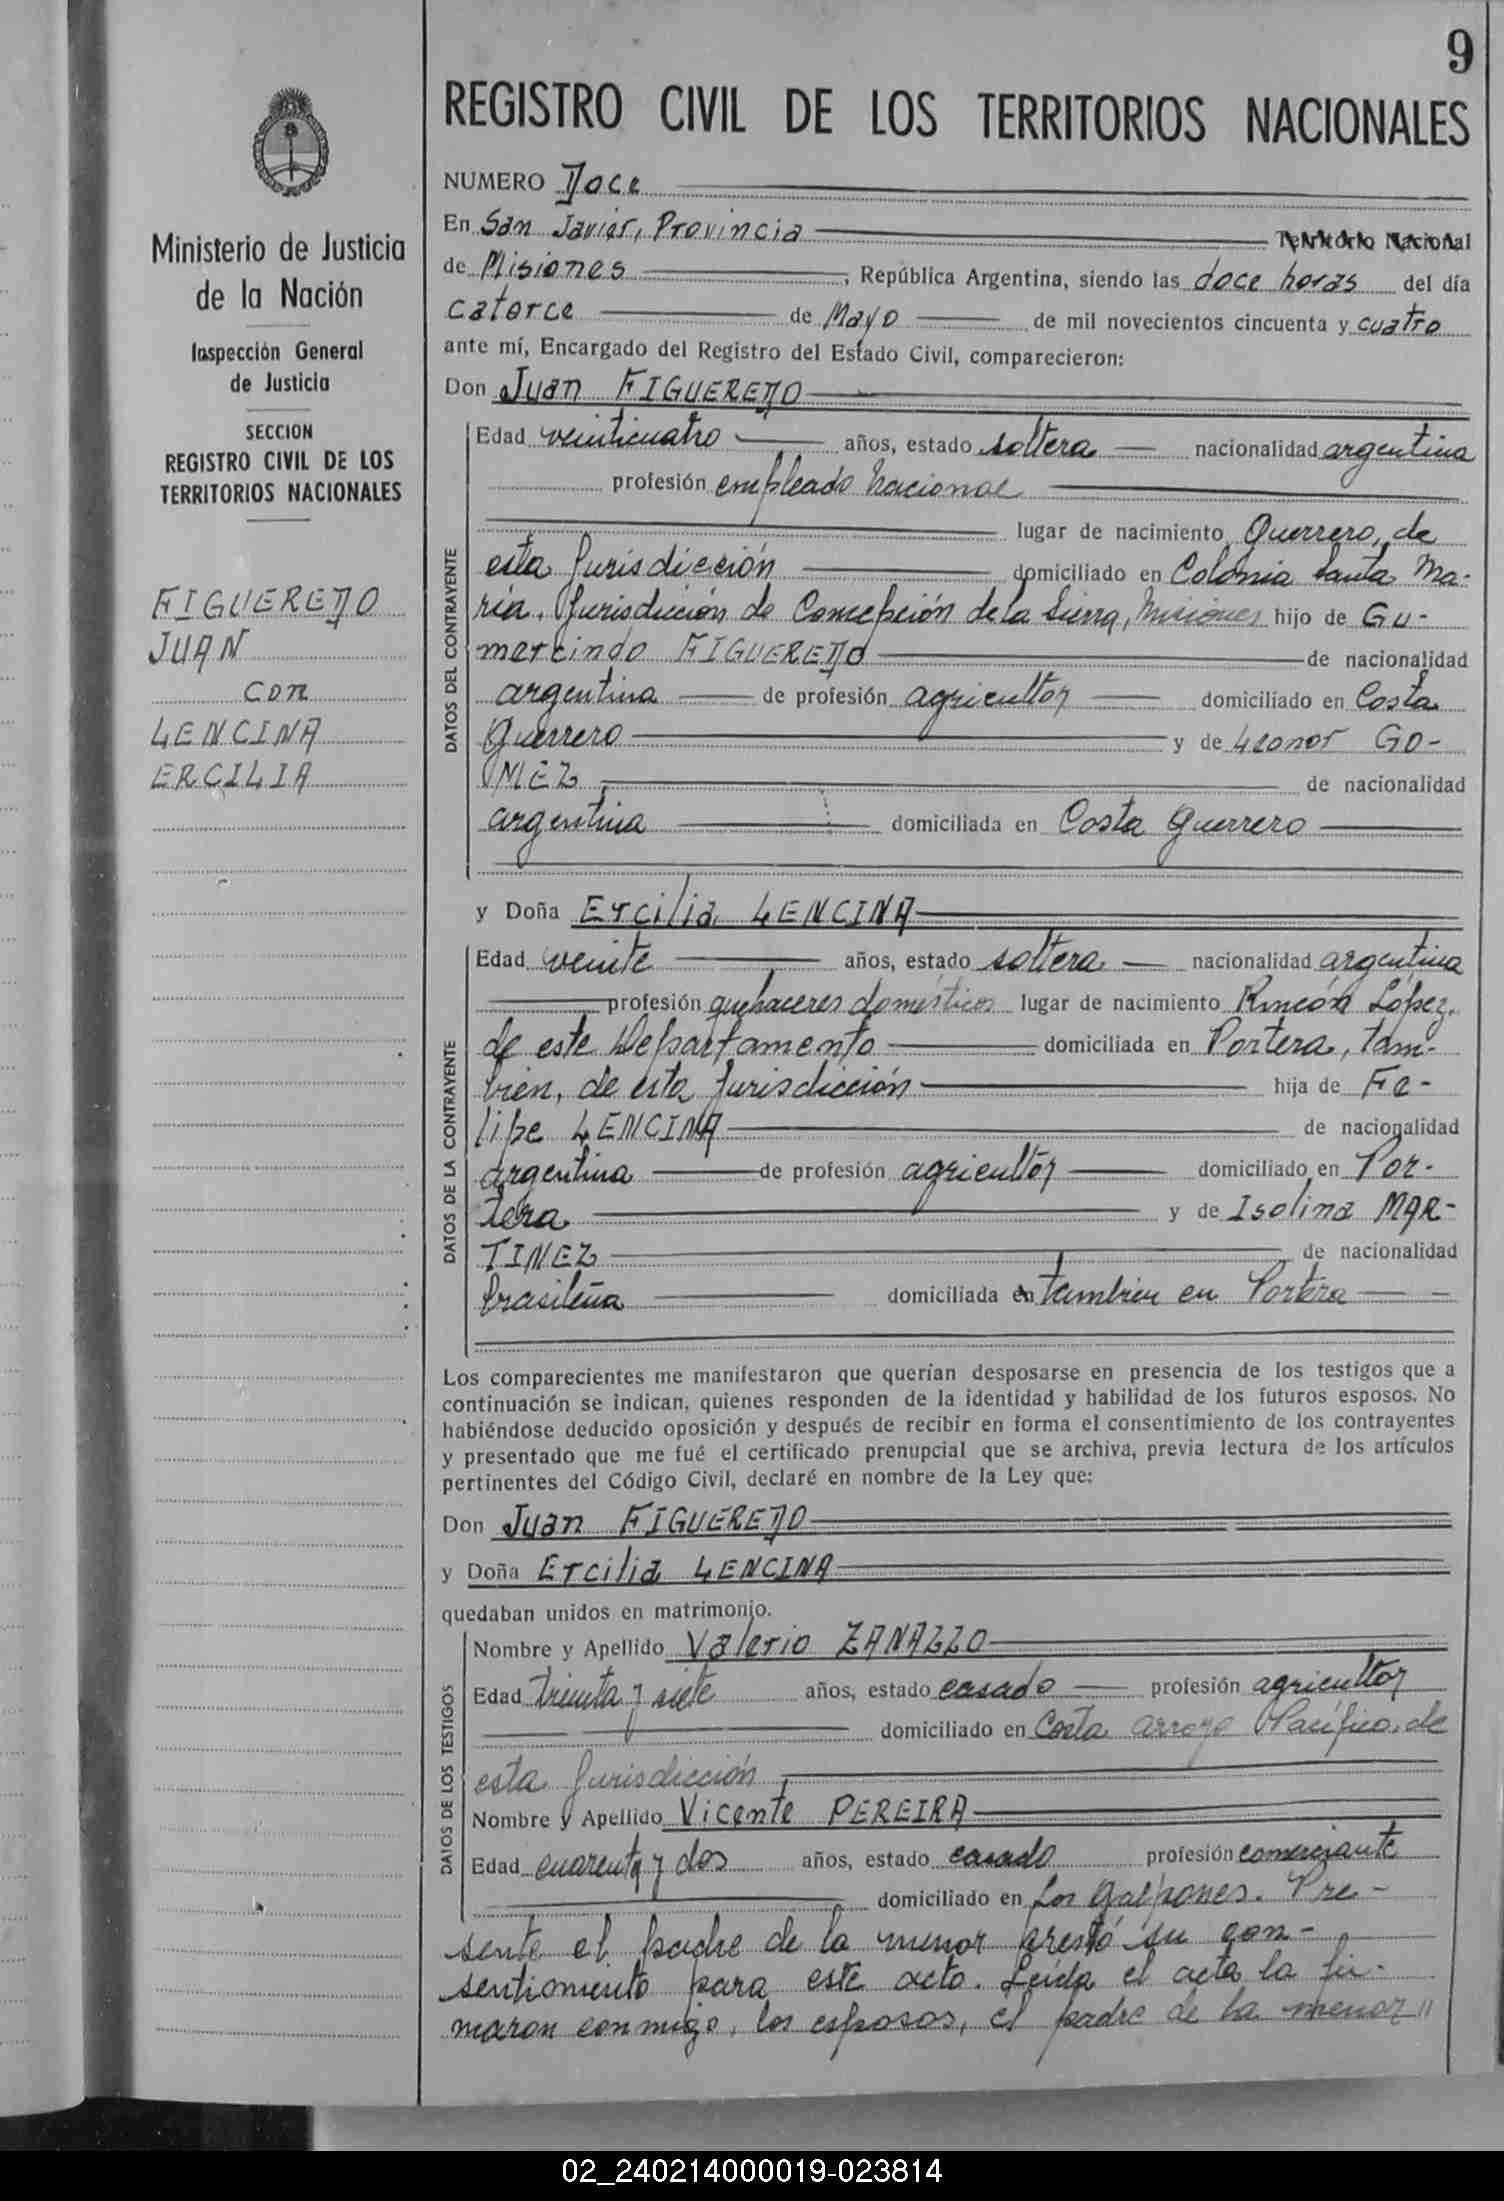 9
REGISTRO CIVIL DE LOS TERRITORIOS NACIONALES
Ministerio de Justicia
de la Nación
Inspección General
de Justicia
SECCION
REGISTRO CIVIL DE LOS
TERRITORIOS NACIONALES
FIGUEREDO
JUAN
con
LENCINA
ERCILIA
NUMERO Doce
En San Javier, Provincia Territorio Nacional
de Misiones, República Argentina, siendo las doce horas del día
catorce de Mayo de mil novecientos cincuenta y cuatro
ante mí, Encargado del Registro del Estado Civil, comparecieron:
Don Juan FIGUEREDO
DATOS DEL CONTRAYENTE
Edad veinticuatro años, estado soltera nacionalidad argentina
profesión empleado nacional
lugar de nacimiento Guerrero, de
esta Jurisdicción domiciliado en Colonia Santa Ma-
ría, Jurisdicción de Concepción de la Sierra, Misiones hijo de Gu-
mercindo FIGUEREDO de nacionalidad
argentina de profesión agricultor domiciliado en Costa
Guerrero y de Leonor GO-
MEZ de nacionalidad
argentina domiciliada en Costa Guerrero
y Doña Ercilia LENCINA
DATOS DE LA CONTRAYENTE
Edad veinte años, estado soltera nacionalidad argentina
profesión quehaceres domésticos lugar de nacimiento Rincón López,
de este Departamento domiciliada en Portera, tam-
bien, de esta Jurisdicción hija de Fe-
lipe LENCINA de nacionalidad
argentina de profesión agricultor domiciliado en Por-
tera y de Isolina MAR-
TINEZ de nacionalidad
brasileña domiciliada en tambien en Portera
Los comparecientes me manifestaron que querían desposarse en presencia de los testigos que a
continuación se indican, quienes responden de la identidad y habilidad de los futuros esposos. No
habiéndose deducido oposición y después de recibir en forma el consentimiento de los contrayentes
y presentado que me fué el certificado prenupcial que se archiva, previa lectura de los artículos
pertinentes del Código Civil, declaré en nombre de la Ley que:
Don Juan FIGUEREDO
y Doña Ercilia LENCINA
quedaban unidos en matrimonio.
DATOS DE LOS TESTIGOS
Nombre y Apellido Valerio ZANAZZO
Edad treinta y siete años, estado casado profesión agricultor
domiciliado en Costa Arroyo Pacífico, de
esta Jurisdicción
Nombre y Apellido Vicente PEREIRA
Edad cuarenta y dos años, estado casado profesión comerciante
domiciliado en Los Galpones. Pre-
sente el padre de la menor prestó su con-
sentimiento para este acto. Leída el acta la fir-
maron conmigo, los esposos, el padre de la menor //
02_240214000019-023814